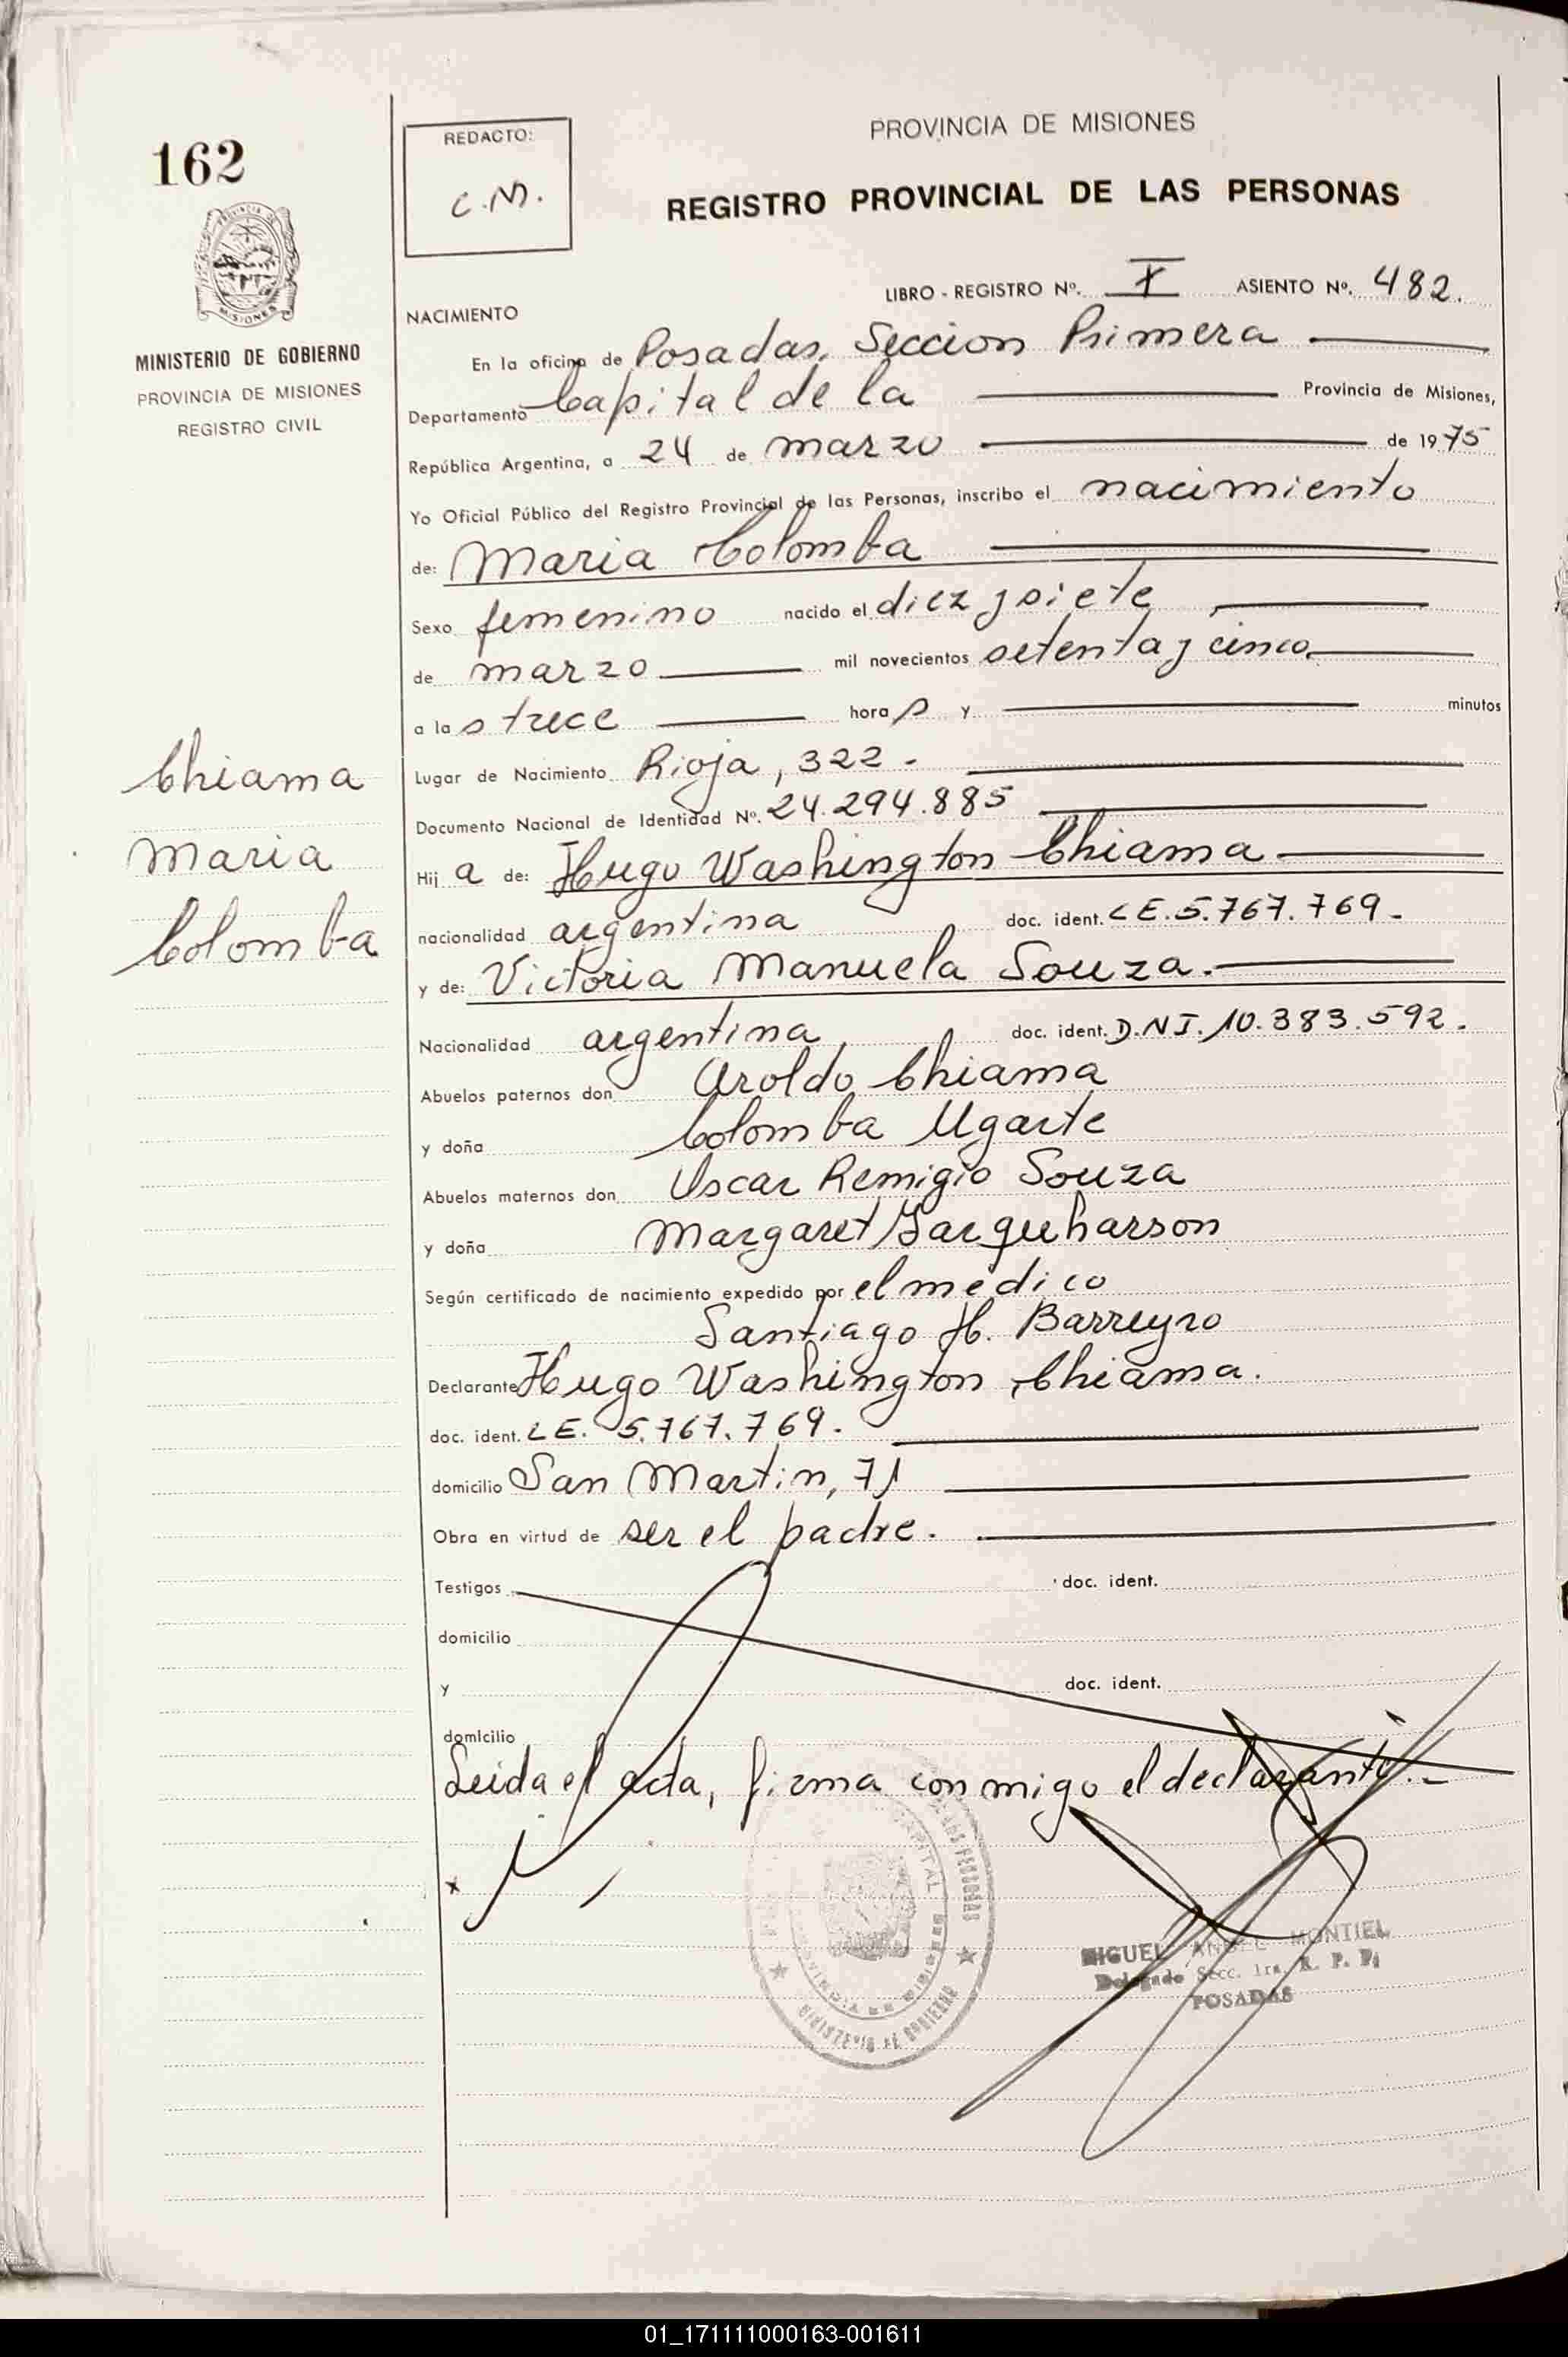 162
PROVINCIA DE MISIONES
MINISTERIO DE GOBIERNO
PROVINCIA DE MISIONES
REGISTRO CIVIL
Chiama
Maria
Colomba
REDACTO:
C.M.
PROVINCIA DE MISIONES
REGISTRO PROVINCIAL DE LAS PERSONAS
LIBRO - REGISTRO Nº. I ASIENTO Nº. 482.
NACIMIENTO
En la oficina de Posadas, Seccion Primera
Departamento Capital de la Provincia de Misiones,
República Argentina, a 24 de marzo de 1975
Yo Oficial Público del Registro Provincial de las Personas, inscribo el nacimiento
de: Maria Colomba
Sexo femenino nacido el diez y siete
de marzo mil novecientos setenta y cinco
a las trece horas y minutos
Lugar de Nacimiento Rioja, 322 -
Documento Nacional de Identidad Nº. 24.294.885
Hij a de: Hugo Washington Chiama
nacionalidad argentina doc. ident. L E. 5.767.769 -
y de: Victoria Manuela Souza.
Nacionalidad argentina doc. ident. D.N I. 10.383.592.
Abuelos paternos don Aroldo Chiama
y doña Colomba Ugarte
Abuelos maternos don Oscar Remigio Souza
y doña Margaret Farquharson
Según certificado de nacimiento expedido por el médico
Santiago H. Barreyro
Declarante Hugo Washington Chiama.
doc. ident. L E. 5.767.769.
domicilio San Martin, 71
Obra en virtud de ser el padre.
Testigos doc. ident.
domicilio
y doc. ident.
domicilio
Leida el acta, firma conmigo el declarante.-
MIGUEL ANGEL MONTIEL
Delegado Secc. 1ra. R. P. P.
POSADAS
MINISTERIO DE GOBIERNO
01_171111000163-001611